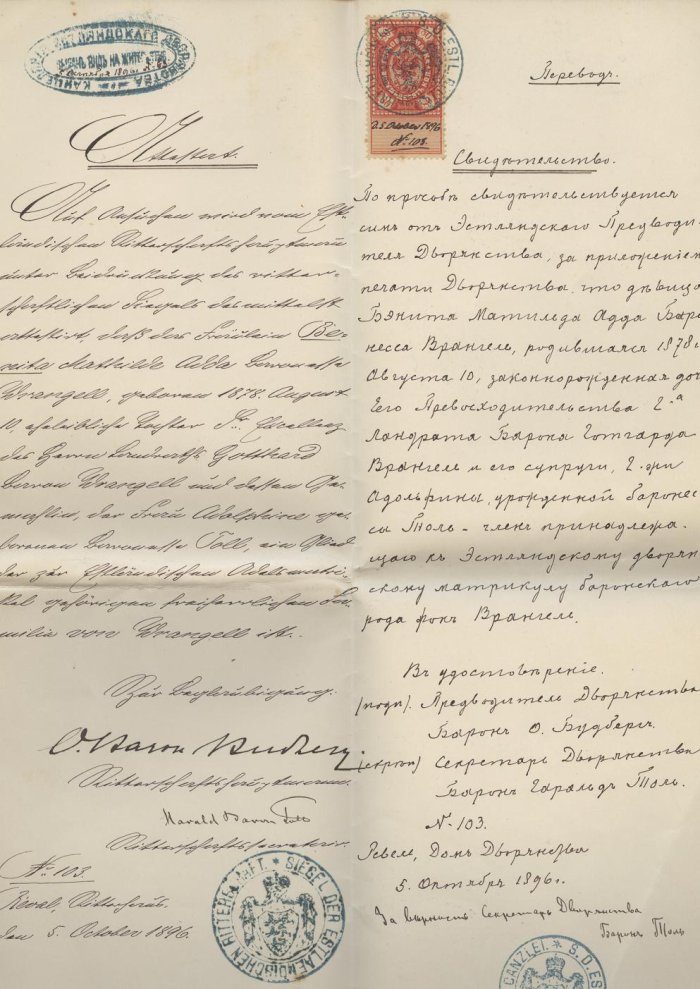 КАНЦЕЛЯРІЯ ЭСТЛЯНДСКАГО ДВОРЯНСТВА
ВИДЪ НА ЖИТЕЛЬСТВО
Attestat.
Auf Ansuchen wird vom Est-
ländischen Ritterschaftshauptmann
unter Beidrückung des ritter-
schaftlichen Siegels desmittelst
attestirt, daß das Fräulein Be-
nita Mathilde Adda Baronesse
Wrangell, geboren 1878 August
10, eheleibliche Tochter Sr. Excellenz
des Herrn Landraths Gotthard
Baron Wrangell und dessen Ge-
mahlin, der Frau Adolphine ge-
borenen Baronesse Toll, ein Glied
der zur Estländischen Adelsmatri-
kel gehörigen freiherrlichen Fa-
milie von Wrangell ist.
Zur Beglaubigung:
O. Baron Budberg
Ritterschaftshauptmann.
Harald Baron Toll
Ritterschaftssecretair.
№ 103.
Reval, Ritterhaus
den 5. October 1896.
SIEGEL DER ESTLAENDISCHEN RITTERSCHAFT.
S. D. ESTL.
5 October 1896
№ 103.
Переводъ.
Свидѣтельство.
По просьбѣ свидѣтельствуется
симъ отъ Эстляндскаго Предводи-
теля Дворянства, за приложеніемъ
печати Дворянства, что дѣвица
Бенита Матильда Адда Баро-
несса Врангель, родившаяся 1878 г.
Августа 10, законнорожденная дочь
Его Превосходительства Г-на
Ландрата Барона Готгарда
Врангель и его супруги, Г-жи
Адольфины, урожденной баронес-
сы Толь - членъ принадлежа-
щаго къ Эстляндскому дворян-
скому матрикулу баронскаго
рода фонъ Врангель.
Въ удостовѣреніе.
(подп.) Предводитель Дворянства
Баронъ О. Будбергъ.
(скрѣп.) Секретарь Дворянства
Баронъ Гаральдъ Толь.
№ 103.
Ревель, Домъ Дворянства
5. Октября 1896 г.
За вѣрность Секретарь Дворянства
Баронъ Толь
CANZLEI. ★ S. D. ES